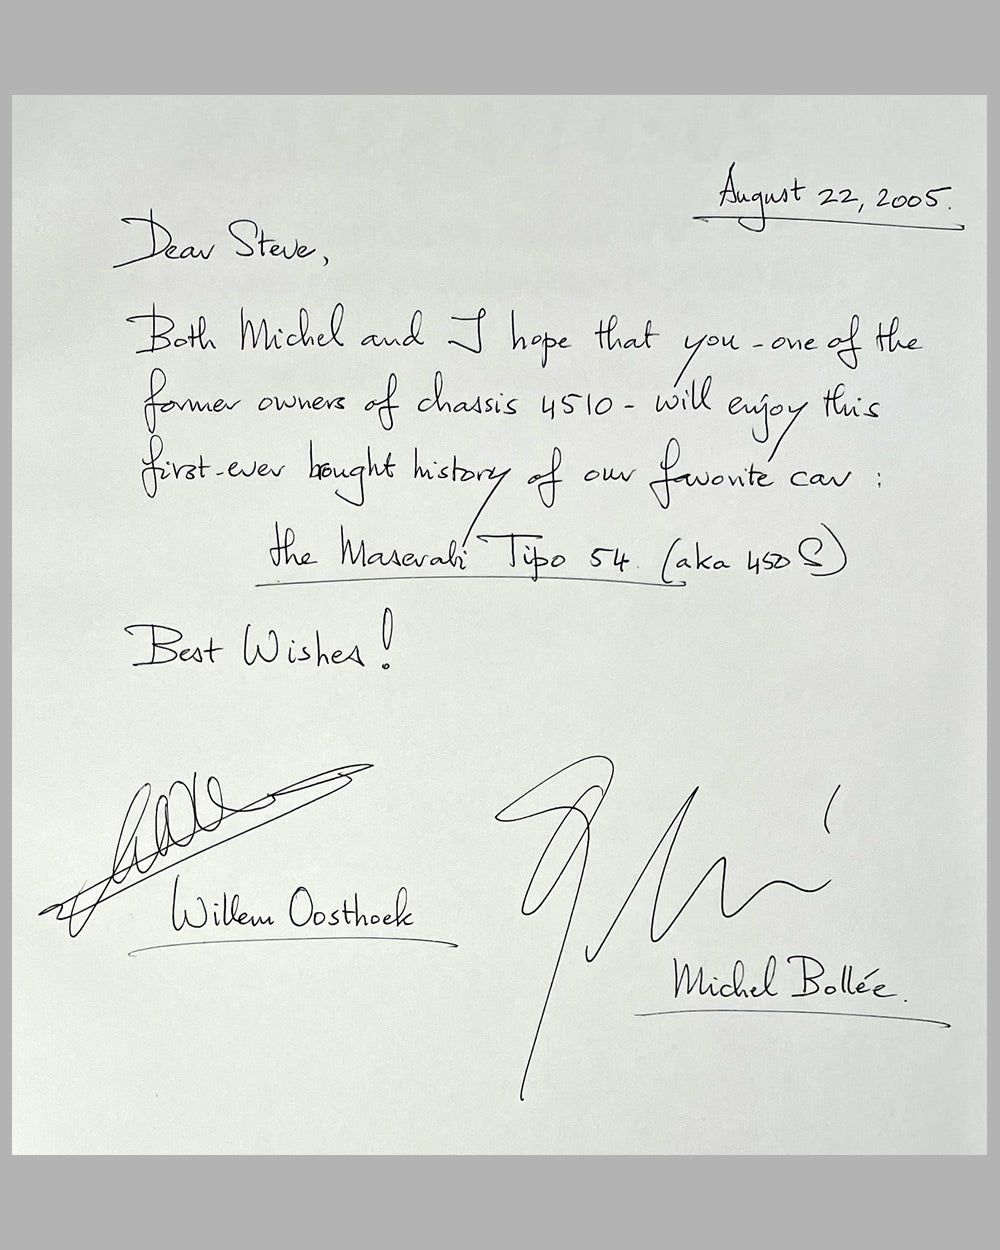 August 22, 2005.
Dear Steve,
Both Michel and I hope that you - one of the
former owners of chassis 4510 - will enjoy this
first-ever bought history of our favorite car :
the Maserati Tipo 54 (aka 450 S)
Best Wishes!
Willem Oosthoek
Michel Bollée.